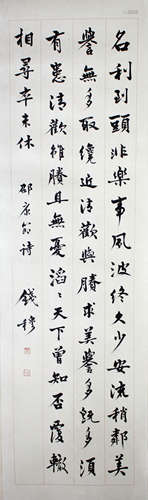 名利到頭非樂事風波終久少安流稍鄰美
譽無多取纔近清歡與賸求美譽多既多須
有患清歡雖賸且無憂滔〻天下曾知否覆轍
相尋卒未休 邵康節詩 錢穆